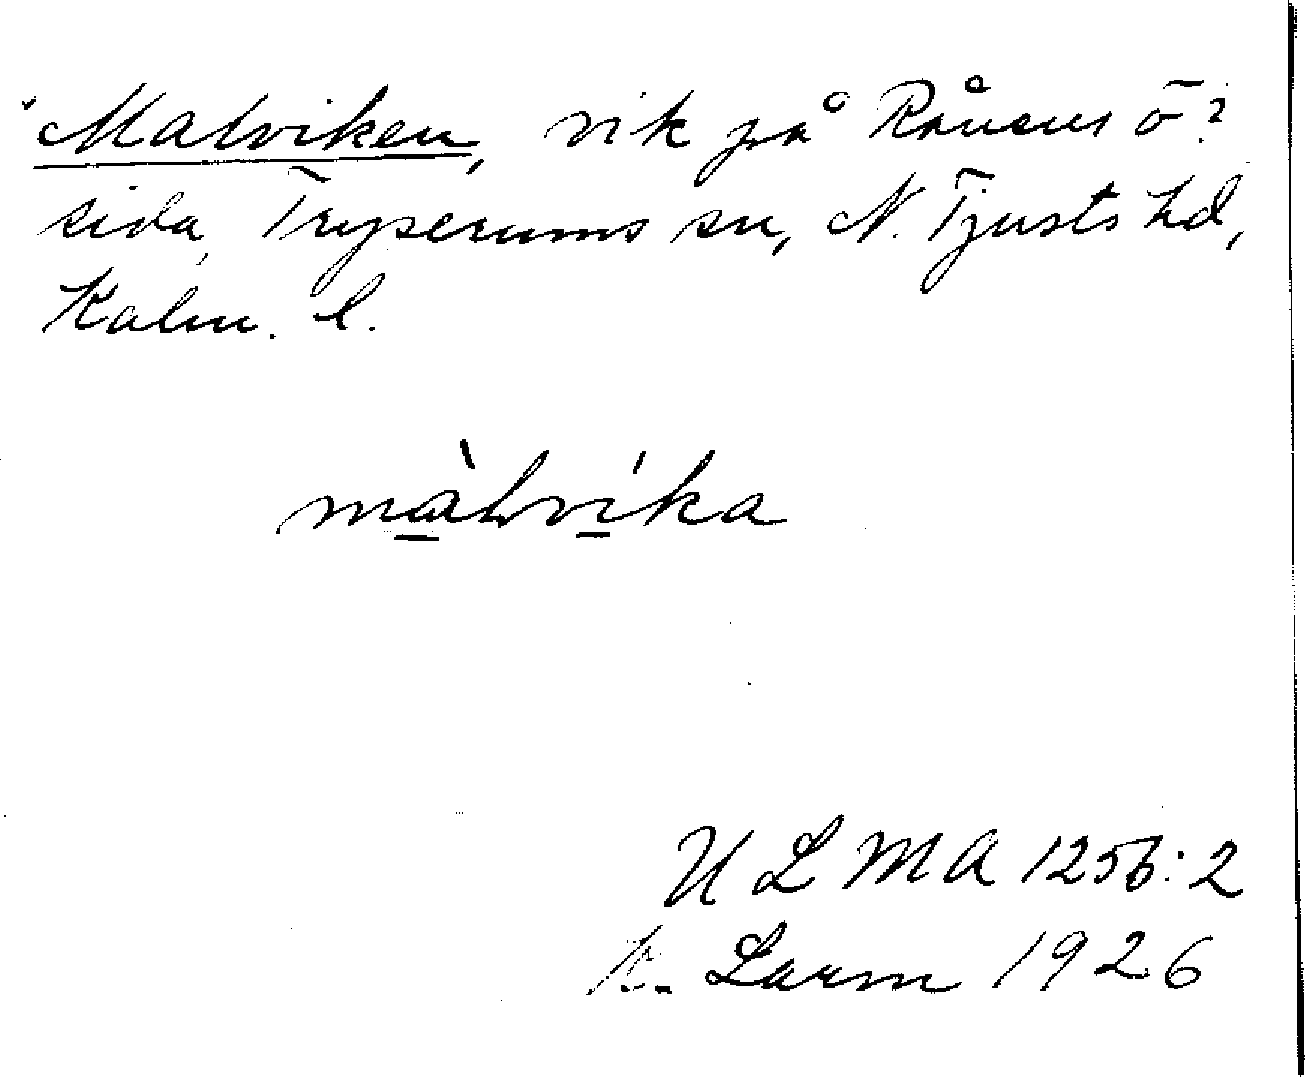 Malviken, vik på Råsens ö?
sida, Tryserums sn, N. Tjusts hd,
Kalm. l.
màlvíka
ULMA 1256:2
K. Larm 1926